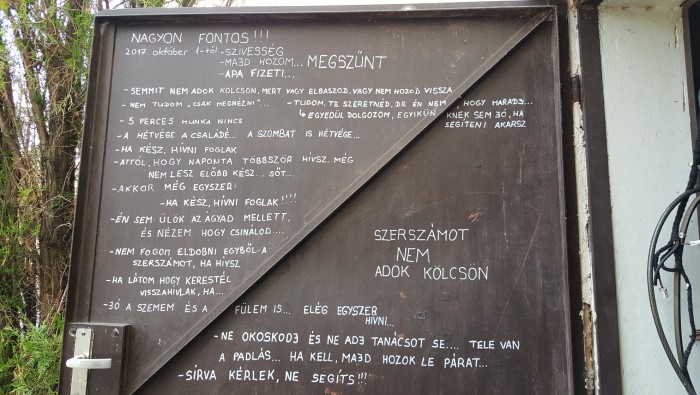 NAGYON FONTOS!!!
2017 október 1-től -SZIVESSÉG
-MA3D HOZOM... MEGSZŰNT
-APA FIZETI...
-SEMMIT NEM ADOK KÖLCSÖN, MERT VAGY ELBASZOD, VAGY NEM HOZOD VISSZA
-NEM TUDOM „CSAK MEGNÉZNI"... -TUDOM, TE SZERETNÉD, DE ÉN NEM, HOGY HARADJ...
EGYEDÜL DOLGOZOM, EGYIKÜNKNEK SEM 3Ó, HA
- 5 PERCES MUNKA NINCS SEGÍTENI AKARSZ
-A HÉTVÉGE A CSALÁDÉ... A SZOMBAT IS HÉTVÉGE...
-HA KÉSZ, HÍVNI FOGLAK
-ATTÓL, HOGY NAPONTA TÖBBSZÖR HÍVSZ, MÉG
NEM LESZ ELŐBB KÉSZ... SŐT...
-AKKOR MÉG EGYSZER:
-HA KÉSZ, HÍVNI FOGLAK!!!!
-ÉN SEM ÜLÖK AZ ÁGYAD MELLETT,
ÉS NÉZEM HOGY CSINÁLOD....
SZERSZÁMOT
NEM
ADOK KÖLCSÖN
-NEM FOGOM ELDOBNI EGYBŐL A
SZERSZÁMOT, HA HIVSZ
-HA LÁTOM HOGY KERESTÉL
VISSZAHIVLAK, HA...
-3Ó A SZEMEM ÉS A FÜLEM IS... ELÉG EGYSZER
HIVNI...
-NE OKOSKOD3 ÉS NE AD3 TANÁCSOT SE.... TELE VAN
A PADLÁS... HA KELL, MA3D HOZOK LE PÁRAT...
-SÍRVA KÉRLEK, NE SEGÍTS!!!